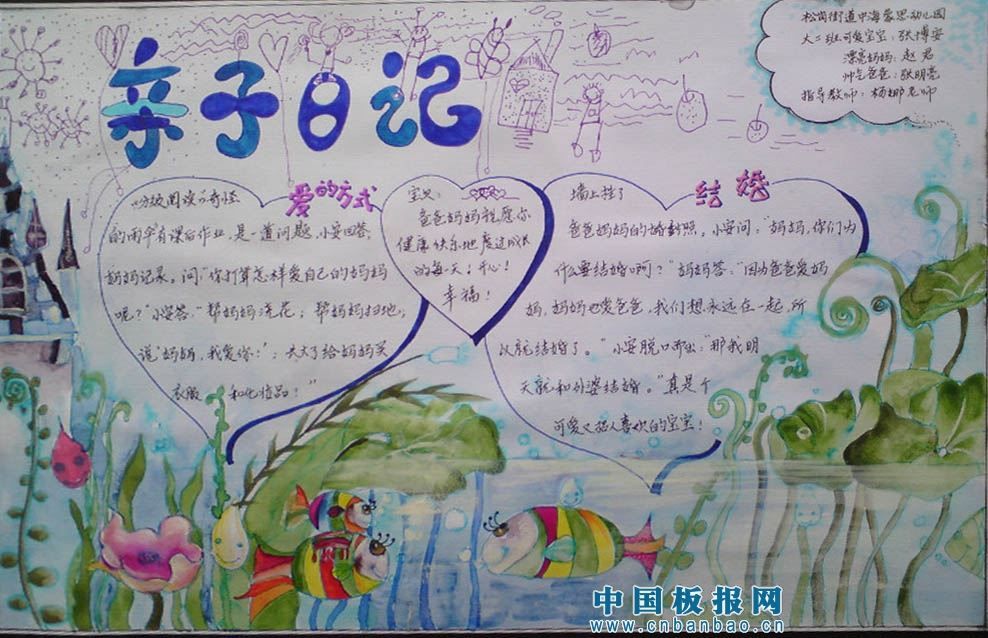 亲子日记
松岗街道中海蒙思幼儿园
大二班可爱宝宝：张博安
漂亮妈妈：赵君
帅气爸爸：张明亮
指导教师：杨娜老师
爱的方式
分级阅读《奇怪
的雨伞》有课后作业，是一道问题，小安回答，
妈妈记录。问“你打算怎样爱自己的妈妈
呢？”小安答“帮妈妈浇花；帮妈妈扫地；
说‘妈妈，我爱你！’；长大了给妈妈买
衣服 和化妆品！”
宝贝：
爸爸妈妈祝愿你
健康快乐地度过成长
的每一天！开心！
幸福！
结婚
墙上挂了
爸爸妈妈的婚纱照，小安问：“妈妈，你们为
什么要结婚啊？”妈妈答：“因为爸爸爱妈
妈，妈妈也爱爸爸，我们想永远在一起，所
以就结婚了。”小安脱口而出：“那我明
天就和外婆结婚。”真是个
可爱又招人喜欢的宝宝！
中国板报网
www.cnbanbao.cn